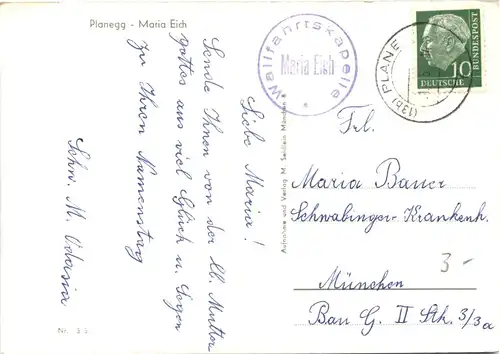 Planegg - Maria Eich
Liebe Maria!
Sende Ihnen von der lb. Mutter
Gottes aus viel Glück u. Segen
zu Ihrem Namenstag
Schw. M.
Nr.
Wallfahrtskapelle
Maria Eich
Aufnahme und Verlag M. Seidlein München 8
(13b) PLANE
10
DEUTSCHE
BUNDESPOST
Frl.
Maria Bauer
Schwabinger-Krankenh.
München
Bau G. II Stk. 3/3a
3-